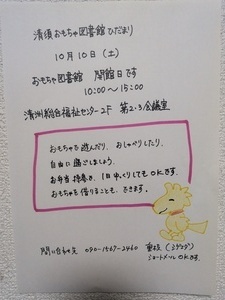 清須おもちゃ図書館ひだまり
10月10日(土)
おもちゃ図書館 開館日です
10:00〜15:00
清洲総合福祉センター2F 第2・3会議室
おもちゃを遊んだり、おしゃべりしたり、
自由に過ごしましょう。
お弁当持参で、1日ゆっくりしてもOKです。
おもちゃを借りることも、できます。
問い合わせ先 090-1567-2460
ショートメールOKです